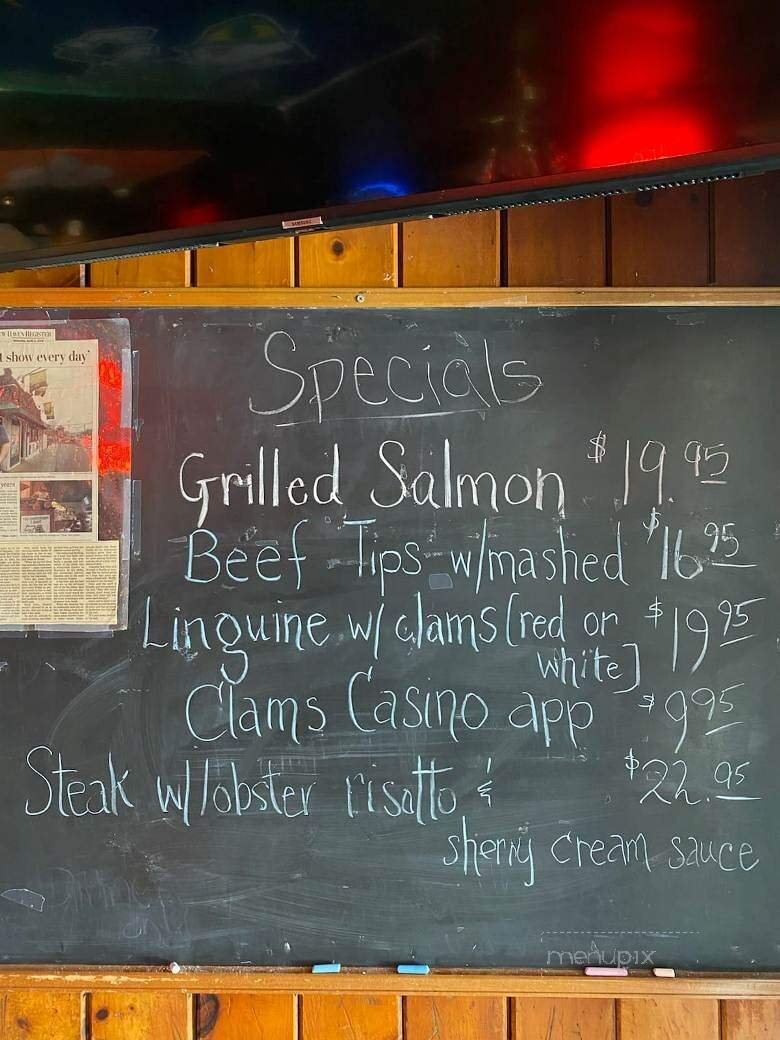 SAMSUNG
NEW HAVEN REGISTER
t show every day'
years
Specials
Grilled Salmon $19.95
Beef Tips w/mashed $16 95
Linguine w/ clams (red or $19 95
white]
Clams Casino app $9 95
Steak w/lobster risotto & $22.95
sherry cream sauce
menupix